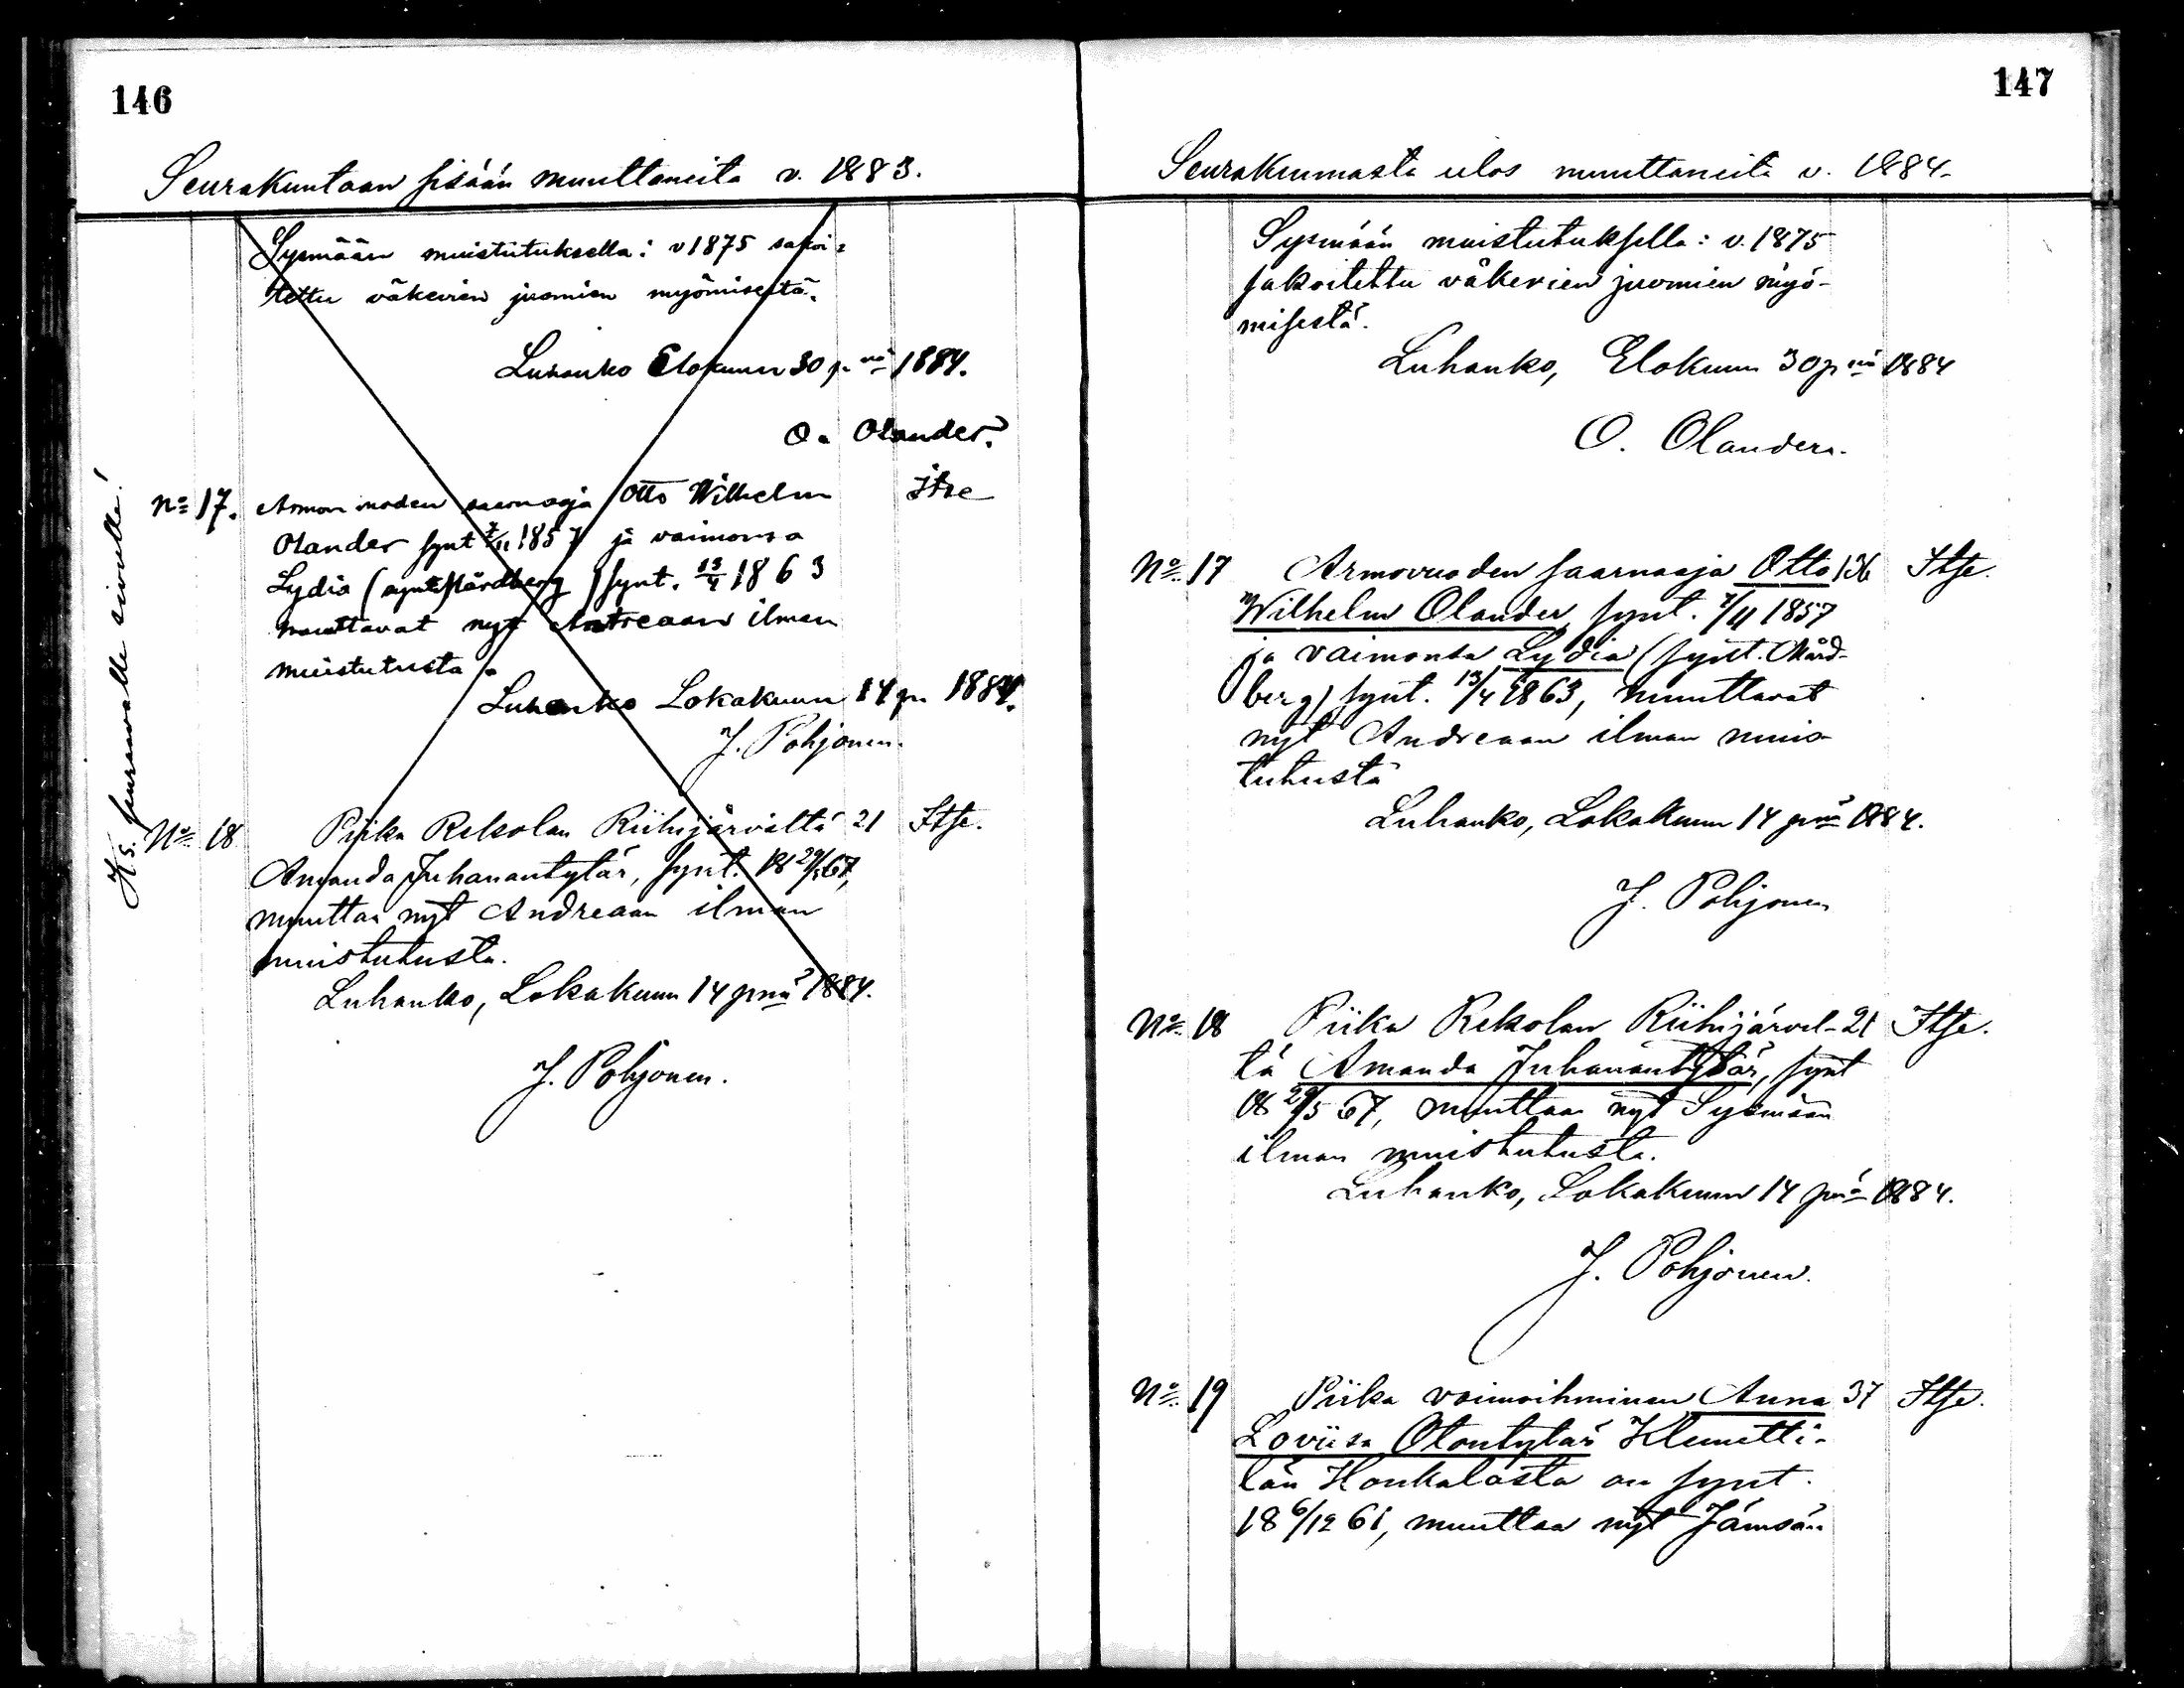 146
Seurakuntaan sisään muuttaneita v. 1883.
Sysmään muistutuksella: v 1875 sakoi=
tettu väkevien juomien myömisestä.
Luhanko Elokuun 30 p. nä 1884.
O. Olander.
No 17. Armon vuoden saarnaaja Otto Wilhelm Itse
Olander synt 7/11 1857 ja vaimonsa
Lydia (synt. Mårdberg) synt. 13/4 1863
muuttavat nyt Antreaan ilman
muistutusta.
Luhanko Lokakuun 14 p. 1884.
J. Pohjonen.
Ks. seuraavalle sivulle!
No 18 Piika Rekolan Riihijärveltä 21 Itse.
Amanda Juhanantytär, synt. 18 29/5 67,
muuttaa nyt Andreaan ilman
muistutusta.
Luhanko, Lokakuun 14 pnä 1884.
J. Pohjonen.
147
Seurakunnasta ulos muuttaneita v. 1884.
Sysmään muistutuksella: v. 1875
sakoitettu väkevien juomien myö-
misestä.
Luhanko, Elokuun 30 p nä 1884
O. Olander.
No 17 Armovuoden saarnaaja Otto 136 Itse.
Wilhelm Olander, synt. 7/11 1857
ja vaimonsa Lydia (synt. Mård-
berg) synt. 13/4 1863, muuttavat
nyt Andreaan ilman muis-
tutusta
Luhanko, Lokakuun 14 pnä 1884.
J. Pohjonen
No 18 Piika Rekolan Riihijärvel- 21 Itse.
tä Amanda Juhanantytär, synt
18 29/5 67, muuttaa nyt Sysmään
ilman muistutusta.
Luhanko, Lokakuun 14 pnä 1884.
J. Pohjonen.
No 19 Piika vaimoihminen Anna 37 Itse.
Loviisa Otontytär Klemetti-
län Honkalasta on synt.
18 6/12 61, muuttaa nyt Jämsän